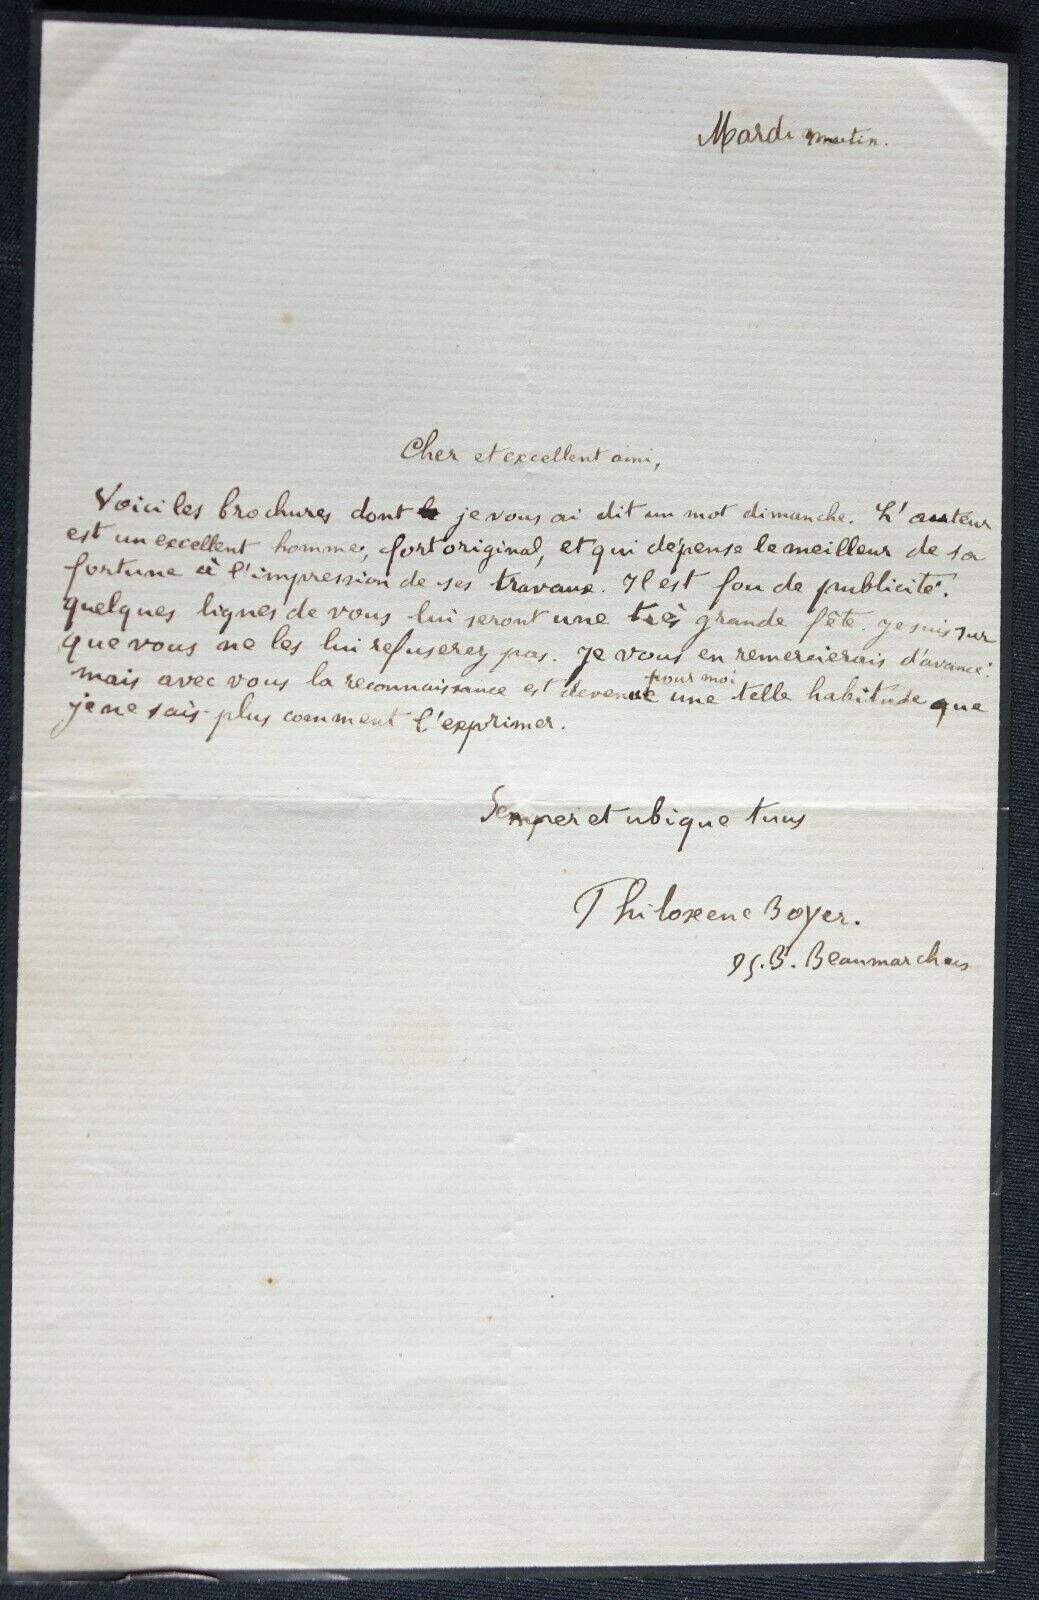 Mardi matin.
Cher et excellent ami,
Voici les brochures dont je vous ai dit un mot dimanche. L'auteur
est un excellent homme, fort original, et qui dépense le meilleur de sa
fortune à l'impression de ses travaux. Il est fou de publicité.
quelques lignes de vous lui seront une très grande fête. je suis sur
que vous ne les lui refuserez pas. Je vous en remercierais d'avance:
mais avec vous la reconnaissance est devenue pour moi une telle habitude que
je ne sais plus comment l'exprimer.
Semper et ubique tuus
Philoxene Boyer.
95. B. Beaumarchais